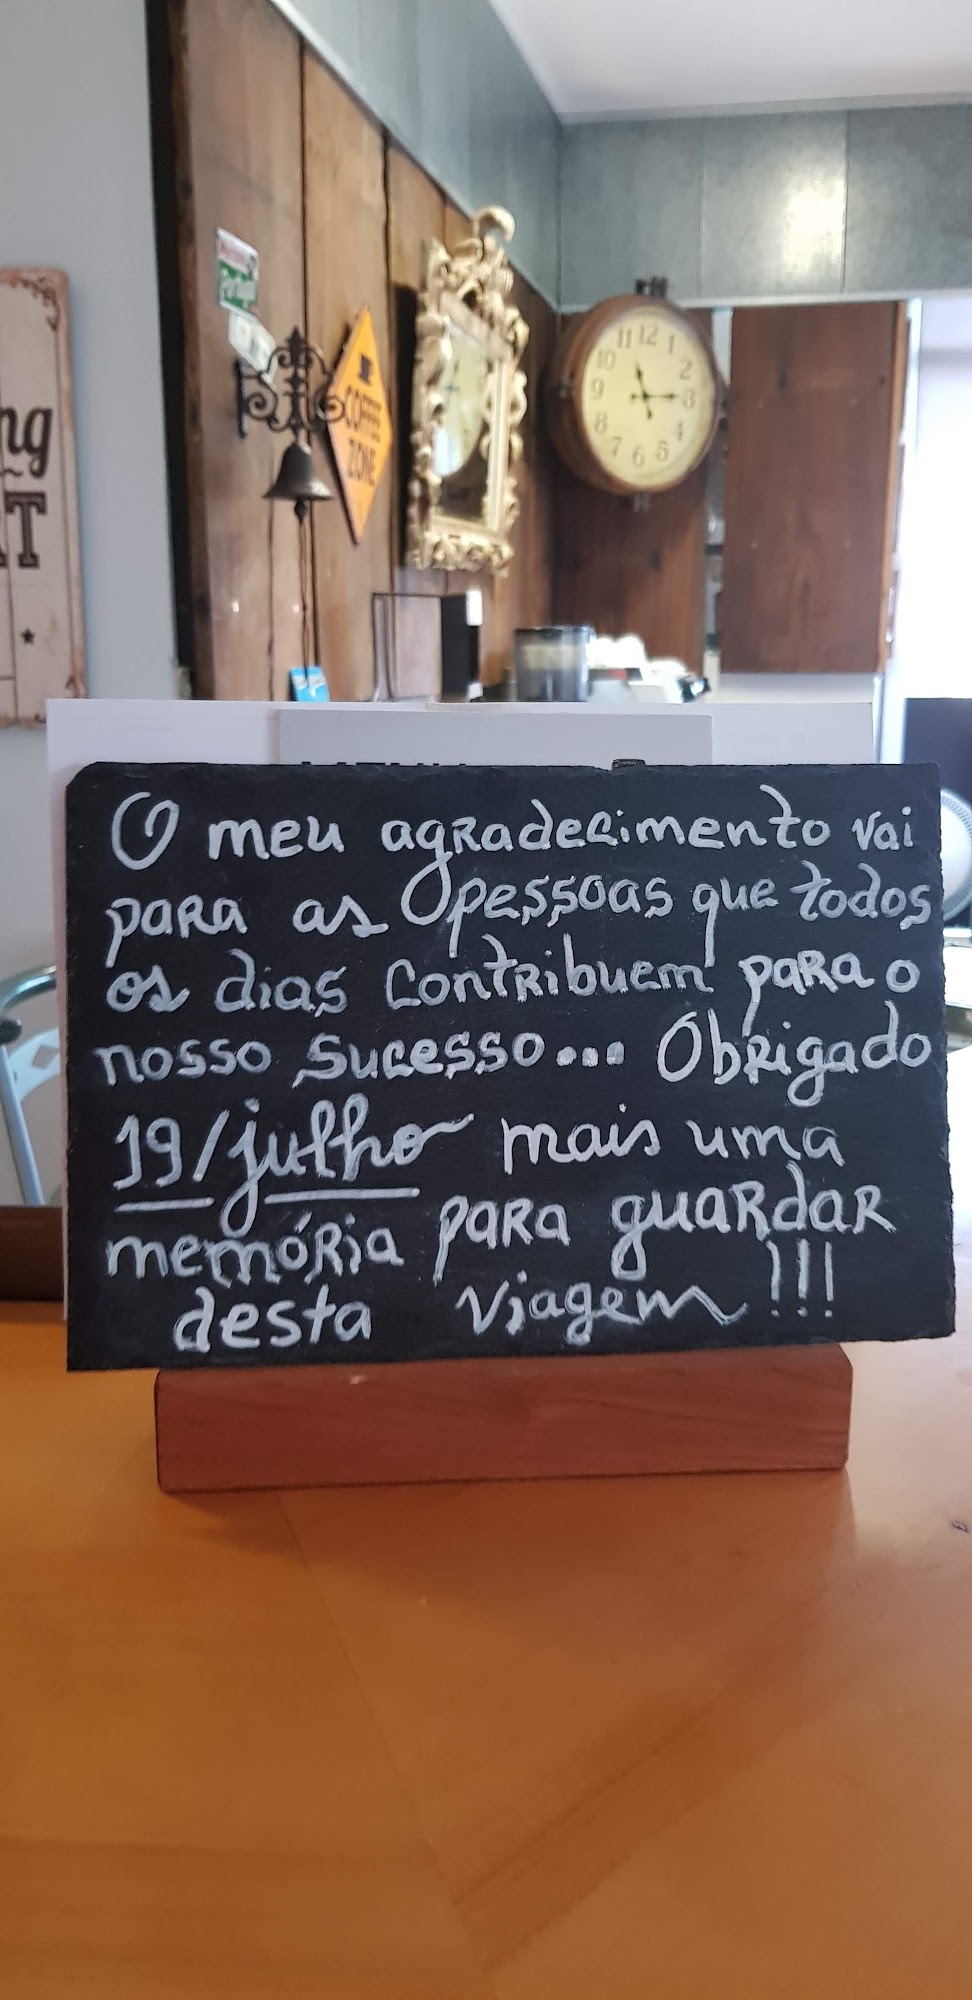 Portugal
COFFEE
ZONE
11 12 1
10 2
9 3
8 4
7 6 5
ng
AT
O meu agradecimento vai
para as pessoas que todos
os dias contribuem para o
nosso sucesso... Obrigado
19/julho mais uma
memória para guardar
desta viagem !!!